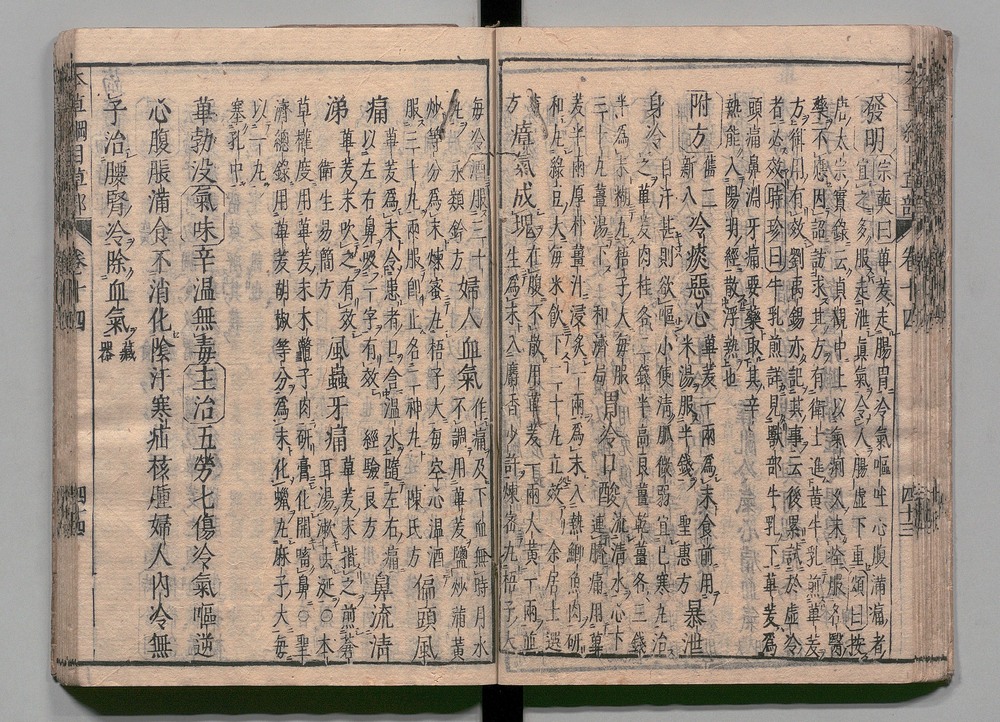 發明宗奭曰蓽茇走腸胃冷氣嘔吐心腹滿痛者
宜之多服走泄眞氣令人腸虛下重頌曰按
唐太宗實錄云貞觀中上以氣痢久未痊服名醫
藥不應因詔訪求其方有衛士進黃牛乳煎蓽茇
方御用有效劉禹錫亦記其事云後累試於虛冷
者必效時珍曰牛乳煎詳見獸部牛乳下蓽茇爲
頭痛鼻淵牙痛要藥取其辛
熱能入陽明經散浮熱也
附方舊二新八冷痰惡心蓽茇一兩爲末食前用米湯服半錢聖惠方暴泄
身冷自汗甚則欲嘔小便清脈微弱宜已寒丸治之蓽茇肉桂各二錢半高良薑乾薑各三錢
半爲末糊丸梧子大每服三十丸薑湯下和濟局方胃冷口酸流清水心下連臍痛用蓽
茇半兩厚朴薑汁浸炙一兩爲末入熱鯽魚肉研和丸綠豆大每米飲下二十丸立效余居士選
方瘴氣成塊在腹不散用蓽茇一兩大黃一兩並生爲末入麝香少許煉蜜丸梧子大
本草綱目草部 卷十四 四十三
每冷酒服三十丸永類鈐方婦人血氣作痛及下血無時月水不調用蓽茇鹽炒蒲黃
炒等分爲末煉蜜丸梧子大每空心温酒服三十丸兩服卽止名二神丸陳氏方偏頭風
痛蓽茇爲末令患者口含温水隨左右痛以左右鼻吸一字有效經驗良方鼻流清
涕蓽茇末吹之有效衛生易簡方風蟲牙痛蓽茇末揩之煎蒼耳湯漱去涎○本
草權度用蓽茇末木鼈子肉研膏化開㗜鼻○聖濟總錄用蓽茇胡椒等分爲末化蠟丸麻子大每
以一丸塞孔中
蓽勃没氣味辛温無毒主治五勞七傷冷氣嘔逆
心腹脹滿食不消化陰汗寒疝核腫婦人内冷無
子治腰腎冷除血氣藏器
本草綱目草部 卷十四 四十四